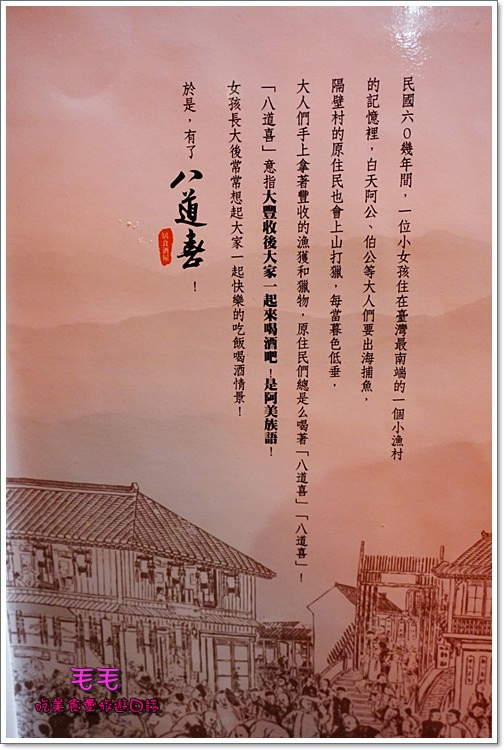 民國六0幾年間，一位小女孩住在臺灣最南端的一個小漁村
的記憶裡，白天阿公、伯公等大人們要出海捕魚，
隔壁村的原住民也會上山打獵，每當暮色低垂，
大人們手上拿著豐收的漁獲和獵物，原住民們總是么喝著「八道喜」「八道喜」！
「八道喜」意指大豐收後大家一起來喝酒吧！是阿美族語！
女孩長大後常常想起大家一起快樂的吃飯喝酒情景！
於是，有了八道喜！
居食酒屋
毛毛
吃美食愛旅遊日誌